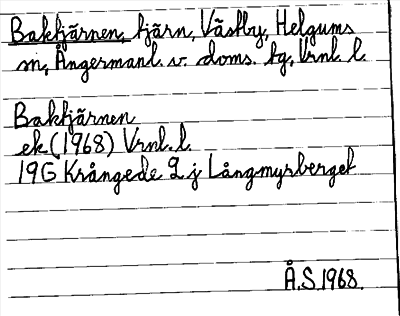 Baktjärnen, tjärn, Västby, Helgums
sn, Ångermanl. v. doms. hg, Vrnl. l.
Baktjärnen
ek (1968) Vrnl. l.
19G Krångede 2 j Långmyrberget
Å.S. 1968.